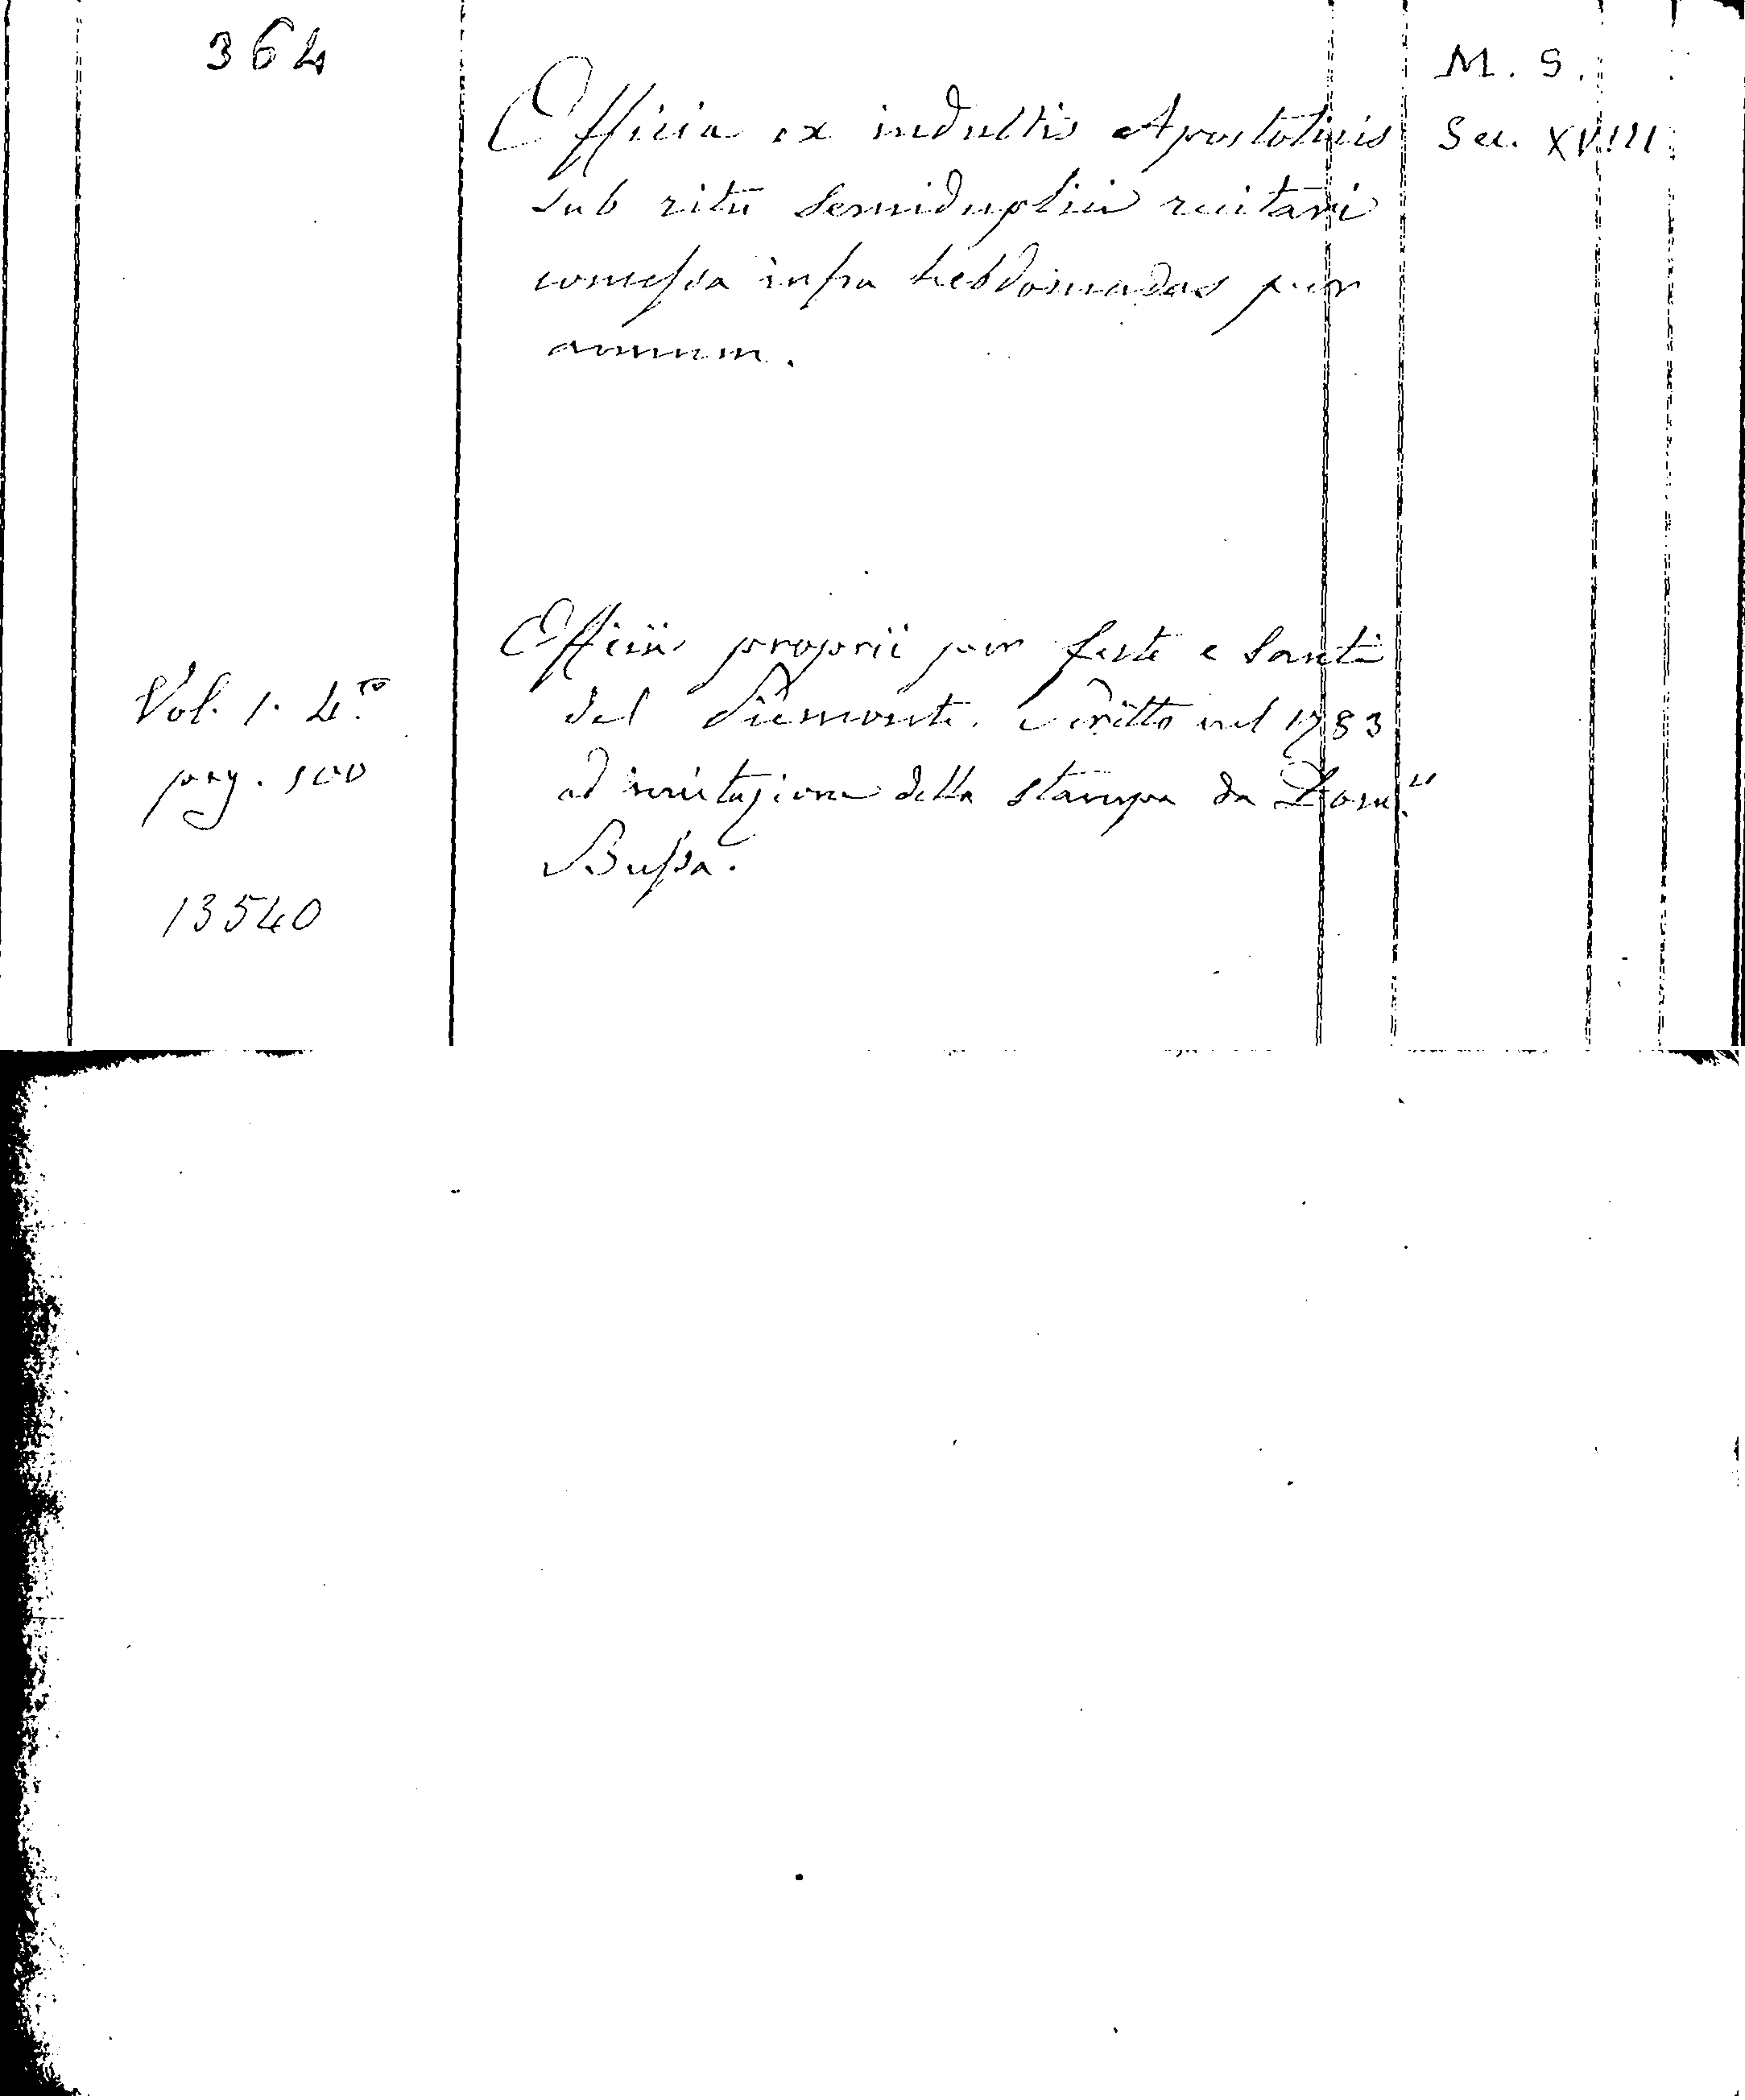 364
M. S.
Officia ex indultis Apostolicis
Sec. XVIII
sub ritu semiduplici recitari
concessa infra hebdomadas per
annum.
Officii proprii per feste e Santi
Vol. 1. 4.to
del Piemonte. Scritto nel 1783
pag. 100
ad imitazione della stampa da Dom.co
Bussa.
13540